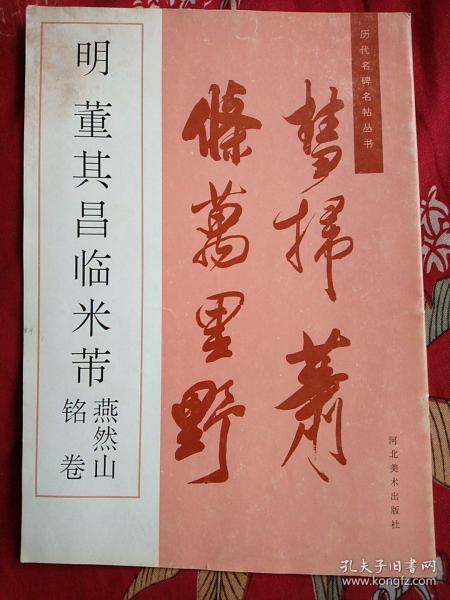 历代名碑名帖丛书
彗掃蕭
條萬里野
明 董其昌临米芾
燕然山
铭卷
河北美术出版社
孔夫子旧书网
www.kongfz.com